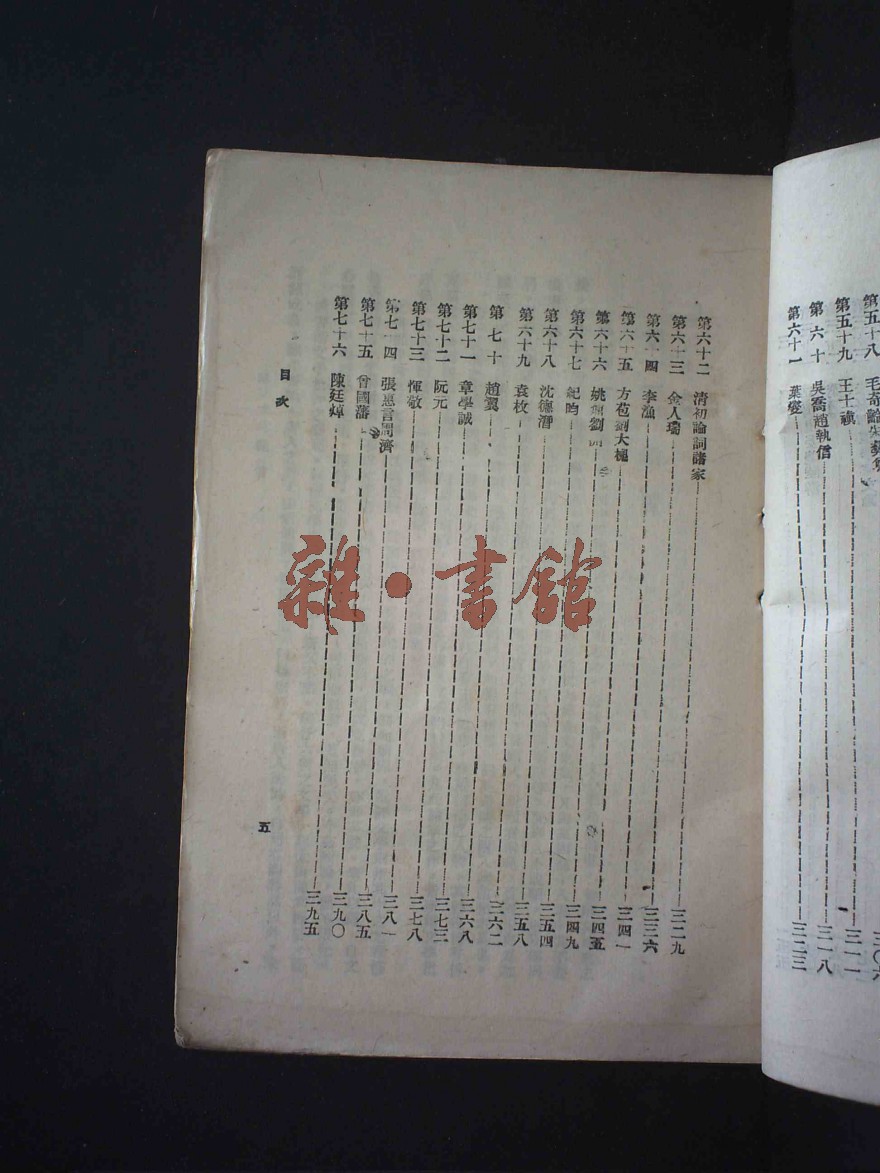 第五十八　毛奇齡朱彝尊　三〇六
第五十九　王士禛　三一一
第六十　吳喬趙執信　三一八
第六十一　葉燮　三二三
第六十二　清初論詞諸家　三二九
第六十三　金人瑞　三三六
第六十四　李漁　三四一
第六十五　方苞劉大櫆　三四五
第六十六　姚鼐劉開　三四九
第六十七　紀昀　三五四
第六十八　沈德潛　三五八
第六十九　袁枚　三六二
第七十　趙翼　三六八
第七十一　章學誠　三七三
第七十二　阮元　三七八
第七十三　惲敬　三八一
第七十四　張惠言周濟　三八五
第七十五　曾國藩　三九〇
第七十六　陳廷焯　三九五
目次
五
雜·書館